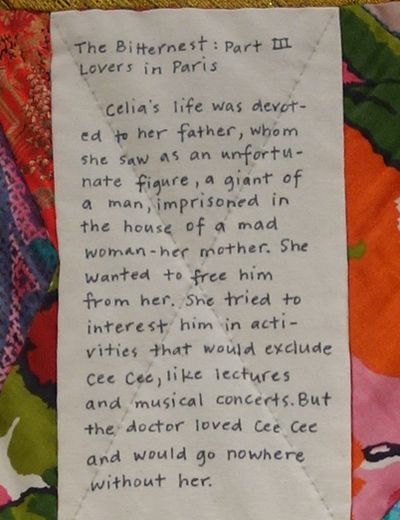 The Bitternest: Part III
Lovers in Paris
Celia's life was devot-
ed to her father, whom
she saw as an unfortu-
nate figure, a giant of
a man, imprisoned in
the house of a mad
woman-her mother. She
wanted to free him
from her. She tried to
interest him in acti-
vities that would exclude
Cee Cee, like lectures
and musical concerts. But
the doctor loved Cee Cee
and would go nowhere
without her.